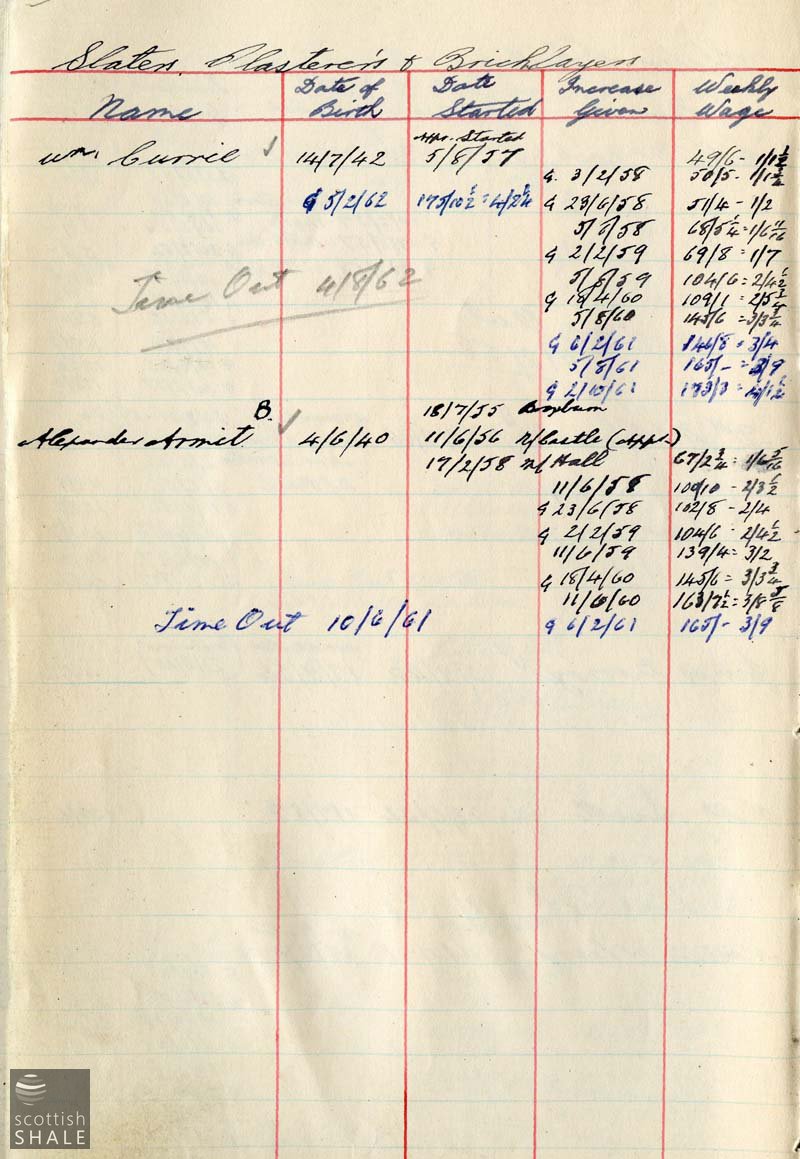 Slaters, Plasterer's & Bricklayers
Name Date of Birth Date Started Increase Given Weekly Wage
Appr. Started
Wm. Currie ✓ 14/7/42 5/8/57 49/6 - 1/1½
G. 3/2/58 50/5 - 1/1¾
G 5/2/62 175/10½ = 4/2¼ G 23/6/58 51/4 - 1/2
5/8/58 68/5¼ = 1/6 11/16
G 2/2/59 69/8 = 1/7
5/8/59 104/6 = 2/4½
Time Out 4/8/62 G 18/4/60 109/1 = 2/5¾
5/8/60 145/6 = 3/3¾
G 6/2/61 146/8 = 3/4
5/8/61 165/- = 3/9
G 2/10/61 = 4/1½
B. 18/7/55
Alexander Armit ✓ 4/6/40 11/6/56 N/Castle (Appr.)
17/2/58 N/Hall 67/2¾ = 1/6 5/16
11/6/58 100/10 - 2/3½
G 23/6/58 102/8 - 2/4
G 2/2/59 104/6 - 2/4½
11/6/59 139/4 = 3/2
G 18/4/60 145/6 = 3/3¾
11/6/60 163/7½ = 3/8⅝
Time Out 10/6/61 G 6/2/61 165/- 3/9
scottish
SHALE